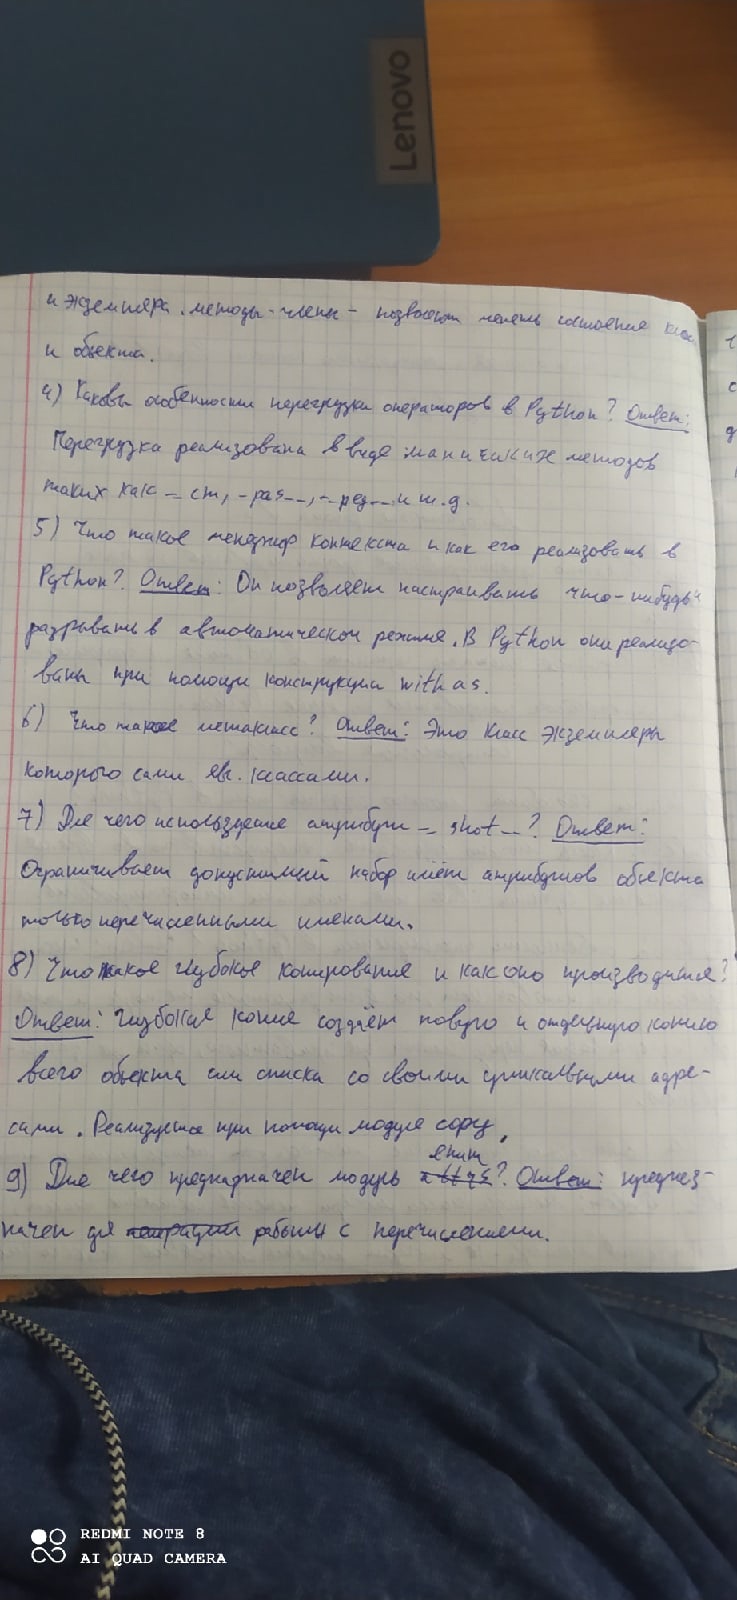 Lenovo
и экземпляра. методы-члены - позволяют менять состояние
и объекта.
4) Каковы особенности перегрузки операторов в Python? Ответ:
Перегрузка реализована в виде магических методов
таких как и т.д.
5) Что такое менеджер контекста и как его реализовать в
Python? Ответ: Он позволяет настраивать что-нибудь
разрывать в автоматическом режиме. В Python они реализо-
ваны при помощи конструкции with as.
6) Что такое метакласс? Ответ: Это класс экземпляры
которого сами явл. классами.
7) Для чего атрибут ? Ответ:
Ограничивает допустимый набор имён атрибутов объекта
только перечисленными именами.
8) Что такое глубокое копирование и как оно производится?
Ответ: глубокая копия создаёт новую и отдельную копию
всего объекта или списка со своими уникальными адре-
сами. Реализуется при помощи модуля copy.
enum
9) Для чего предназначен модуль ? Ответ: предназ-
начен для работы с перечислениями.
REDMI NOTE 8
AI QUAD CAMERA